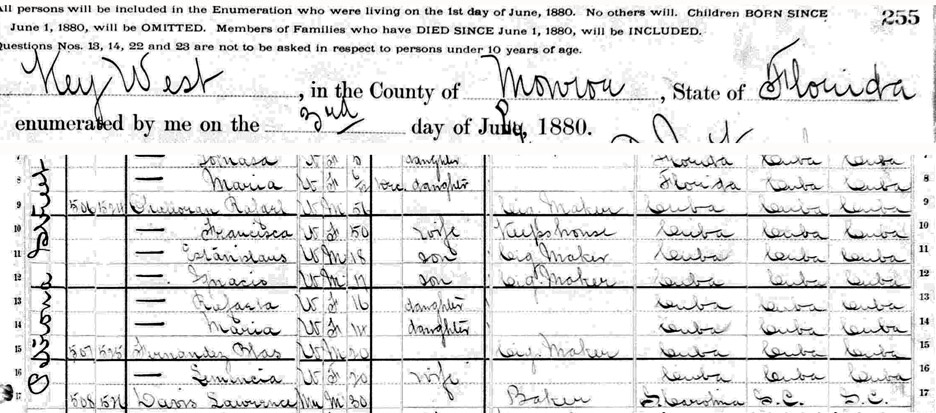 All persons will be included in the Enumeration who were living on the 1st day of June, 1880. No others will. Children BORN SINCE
June 1, 1880, will be OMITTED. Members of Families who have DIED SINCE June 1, 1880, will be INCLUDED.
255
Questions Nos. 13, 14, 22 and 23 are not to be asked in respect to persons under 10 years of age.
Key West, in the County of Monroe, State of Florida
enumerated by me on the 3rd day of June, 1880.
Street
7 — Tomasa W F daughter Florida Cuba Cuba
8 — Maria W F daughter Florida Cuba Cuba 8
9 506 Rafael W M 51 Cig Maker Cuba Cuba Cuba 9
10 — Francisca W F 50 wife Keeps house Cuba Cuba Cuba 10
11 — Estanislaus W M 18 son Cig Maker Cuba Cuba Cuba 11
12 — W M son Cig Maker Cuba Cuba Cuba 12
13 — Rafaela W F 16 daughter Cuba Cuba Cuba 13
14 — Maria W F 14 daughter Cuba Cuba Cuba 14
15 507 525 Fernandez Blas W M 20 Cig. Maker Cuba Cuba Cuba 15
16 — W F 20 wife Cuba Cuba Cuba 16
17 508 526 Davis Lawrence Mu M 30 Baker S Carolina S.C. S.C. 17